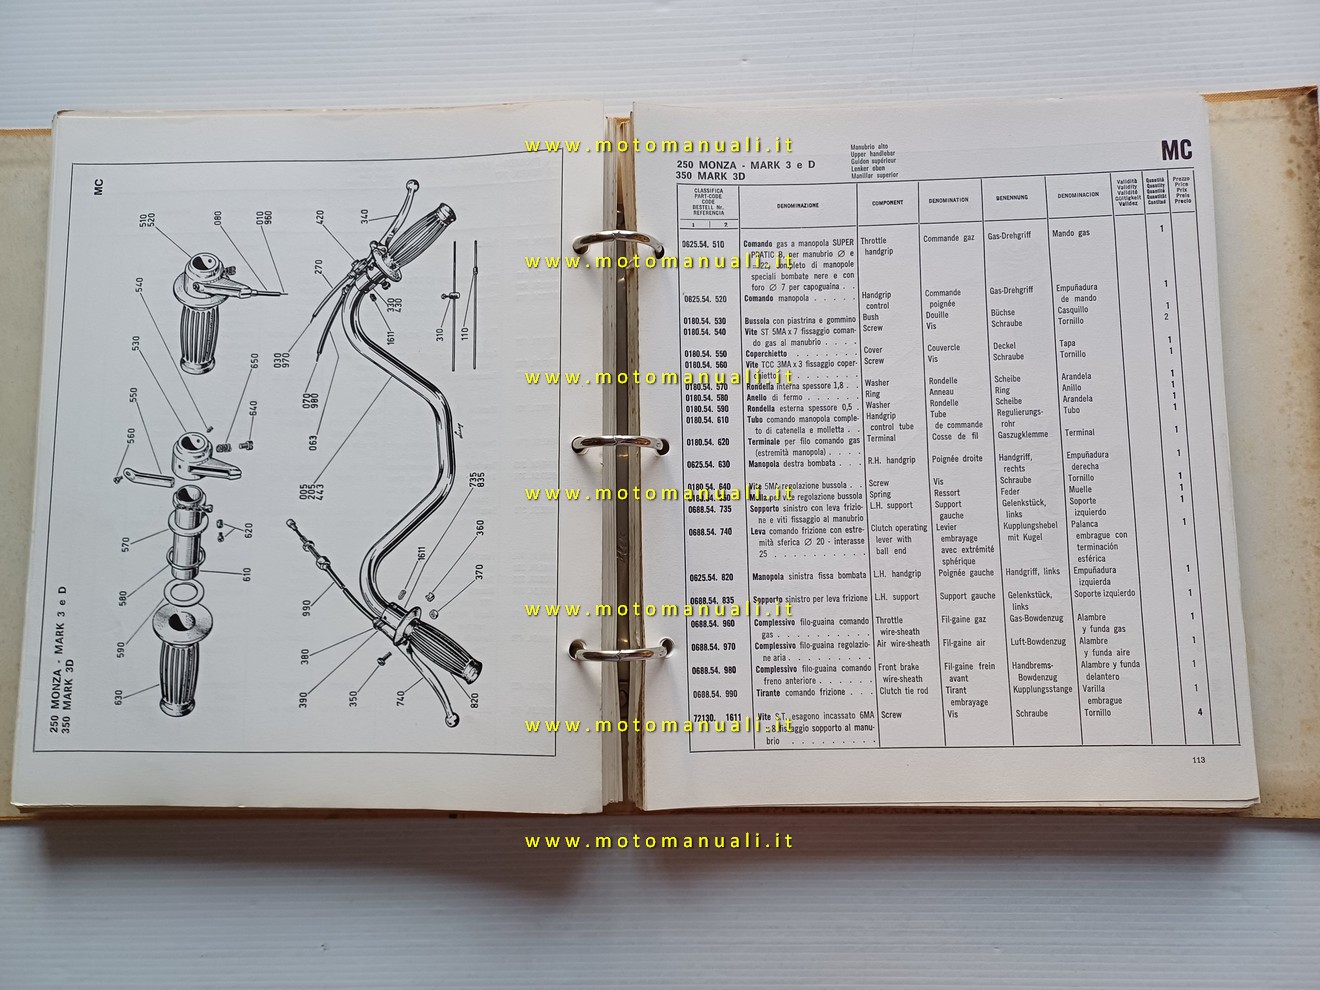 MC
250 MONZA - MARK 3 e D
350 MARK 3D
510
520
080
010
960
420
340
540
270
530
030
970
330
430
1611
310
110
550
650
560
020
980
640
063
005
205
443
735
835
570
620
360
580
610
990
1611
370
590
380
630
390
350
740
820
www.motomanuali.it
www.motomanuali.it
www.motomanuali.it
www.motomanuali.it
www.motomanuali.it
www.motomanuali.it
www.motomanuali.it
250 MONZA - MARK 3 e D
350 MARK 3D
Manubrio alto
Upper handlebar
Guidon supérieur
Lenker oben
Manillar superior
MC
CLASSIFICA
PART-CODE
CODE
BESTELL Nr.
REFERENCIA
1 2
DENOMINAZIONE
COMPONENT
DENOMINATION
BENENNUNG
DENOMINACION
Validità
Validity
Validité
Gültigkeit
Validez
Quantità
Quantity
Quantité
Quantität
Cantidad
Prezzo
Price
Prix
Preis
Precio
0625.54. 510 Comando gas a manopola SUPER Throttle Commande gaz Gas-Drehgriff Mando gas 1
PRATIC B, per manubrio Ø e handgrip
22, completo di manopole
speciali bombate nere e con
foro Ø 7 per capoguaina . .
0625.54. 520 Comando manopola . . . . . Handgrip Commande Gas-Drehgriff Empuñadura 1
control poignée de mando
0180.54. 530 Bussola con piastrina e gommino Bush Douille Büchse Casquillo 1
0180.54. 540 Vite ST 5MA x 7 fissaggio coman- Screw Vis Schraube Tornillo 2
do gas al manubrio . . . .
0180.54. 550 Coperchietto . . . . . . . Cover Couvercle Deckel Tapa 1
0180.54. 560 Vite TCC 3MA x 3 fissaggio coper- Screw Vis Schraube Tornillo 1
chietto
0180.54. 570 Rondella interna spessore 1,8 . . Washer Rondelle Scheibe Arandela 1
0180.54. 580 Anello di fermo . . . . Ring Anneau Ring Anillo 1
0180.54. 590 Rondella esterna spessore 0,5 . Washer Rondelle Scheibe Arandela 1
0180.54. 610 Tubo comando manopola comple- Handgrip Tube Regulierungs- Tubo 1
to di catenella e molletta . . control tube de commande rohr
0180.54. 620 Terminale per filo comando gas Terminal Cosse de fil Gaszugklemme Terminal 1
(estremità manopola) . . . .
0625.54. 630 Manopola destra bombata . . . R.H. handgrip Poignée droite Handgriff, Empuñadura 1
rechts derecha
0180.54. 640 Vite 5MA regolazione bussola . Screw Vis Schraube Tornillo 1
Molla per vite regolazione bussola Spring Ressort Feder Muelle 1
0688.54. 735 Sopporto sinistro con leva frizio- L.H. support Support Gelenkstück, Soporte 1
ne e viti fissaggio al manubrio gauche links izquierdo
0688.54. 740 Leva comando frizione con estre- Clutch operating Levier Kupplungshebel Palanca 1
mità sferica Ø 20 - interasse lever with embrayage mit Kugel embrague con
25 . . . . . . . . . . ball end avec extrémité terminación
sphérique esférica
0625.54. 820 Manopola sinistra fissa bombata L.H. handgrip Poignée gauche Handgriff, links Empuñadura 1
izquierda
0688.54. 835 Sopporto sinistro per leva frizione L.H. support Support gauche Gelenkstück, Soporte izquierdo 1
links
0688.54. 960 Complessivo filo-guaina comando Throttle Fil-gaine gaz Gas-Bowdenzug Alambre 1
gas . . . . . . . . . . wire-sheath y funda gas
0688.54. 970 Complessivo filo-guaina regolazio- Air wire-sheath Fil-gaine air Luft-Bowdenzug Alambre 1
ne aria . . . . . . . . . y funda aire
0688.54. 980 Complessivo filo-guaina comando Front brake Fil-gaine frein Handbrems- Alambre y funda 1
freno anteriore . . . . . . wire-sheath avant Bowdenzug delantero
0688.54. 990 Tirante comando frizione . . . Clutch tie rod Tirant Kupplungsstange Varilla 1
embrayage embrague
72130. 1611 Vite S.T. esagono incassato 6MA Screw Vis Schraube Tornillo 4
8 fissaggio sopporto al manu-
brio . . . . . . . . . .
113